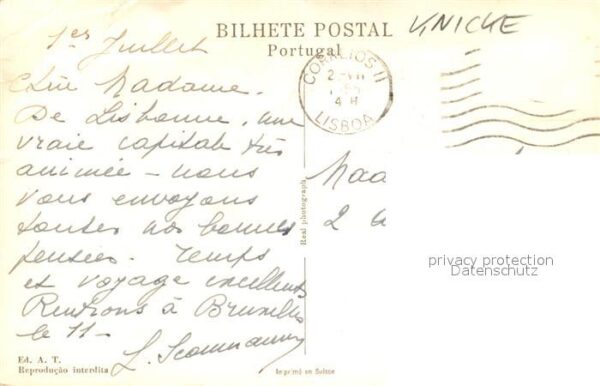 BILHETE POSTAL
Portugal
KINICKE
CORREIOS II
2 VII
4 H
LISBOA
1er Juillet
Chère Madame.
De Lisbonne, une
vraie capitale très
animée - nous
vous envoyons
toutes nos bonnes
pensées. Temps
et voyage excellents
Rentrons à Bruxelles
le 11 -
Real photograph
Maa
2
privacy protection
Datenschutz
Ed. A. T.
Reprodução interdita
Imprimé en Suisse